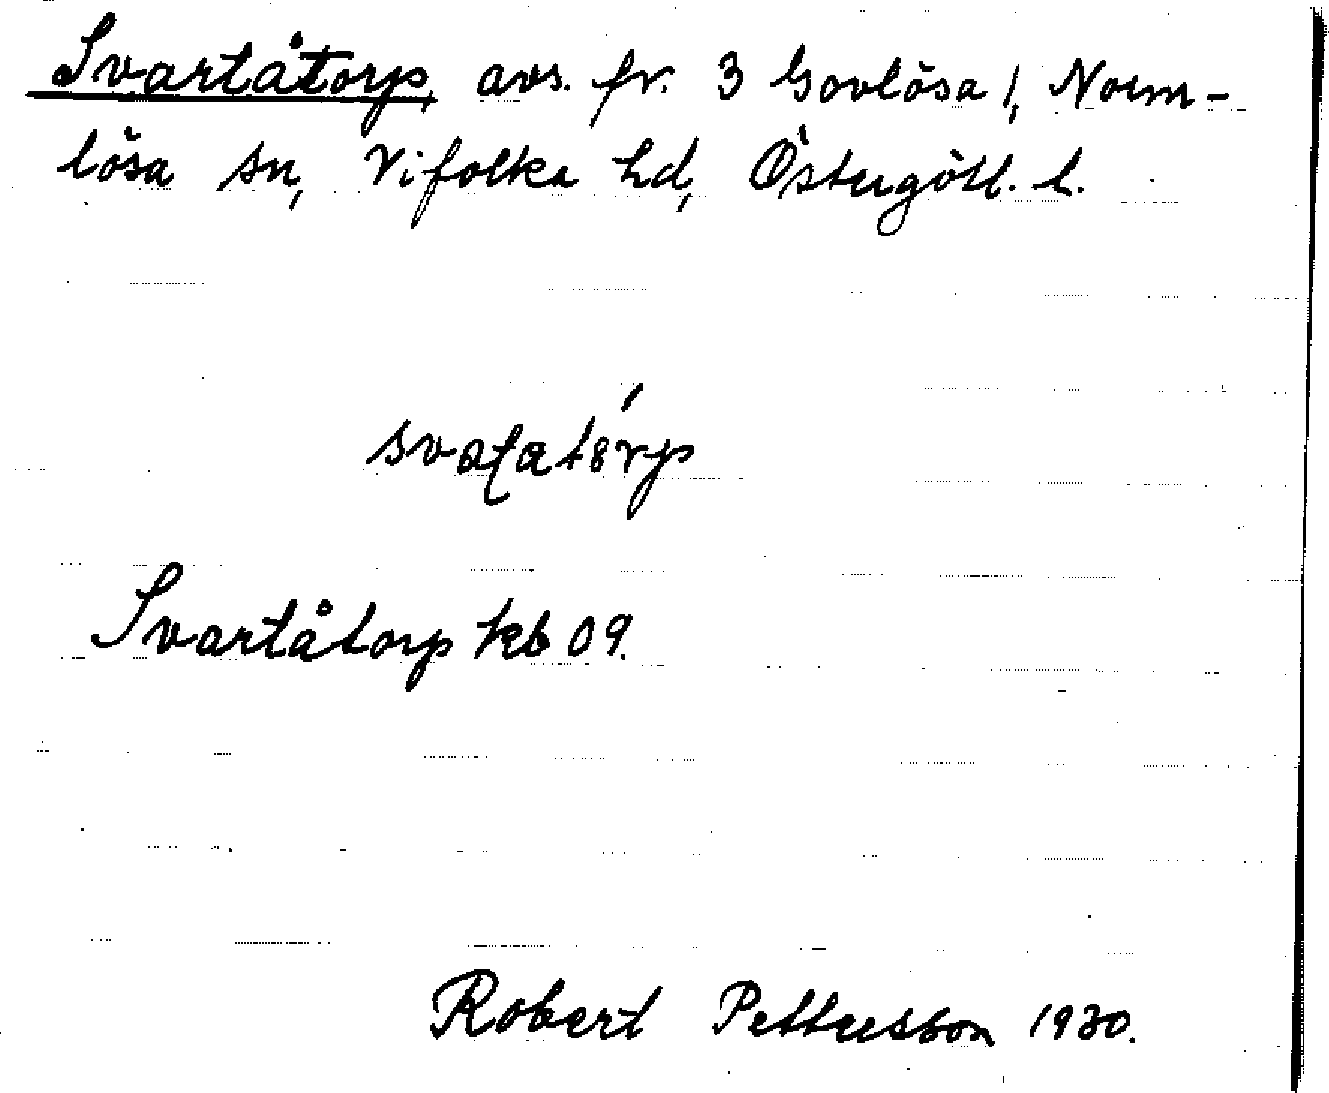 Svartåtorp, avs. fr. 3 Govlösa 1, Norm-
lösa sn, Vifolka hd, Östergötl. l.
Svartåtorp kb 09.
Robert Pettersson 1930.